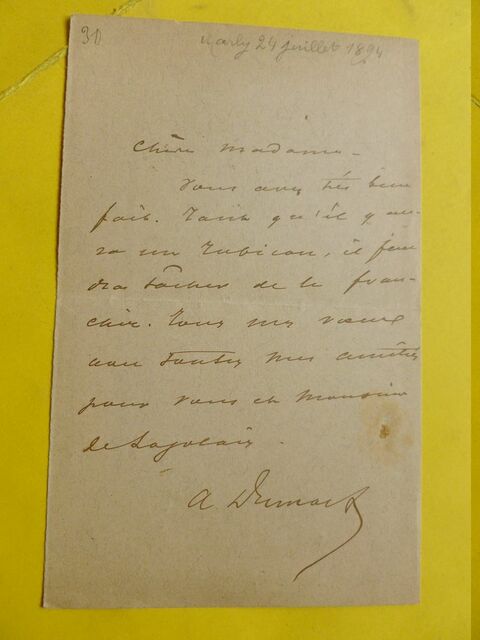 31
Marly 24 juillet 1894
Chère Madame -
Vous avez très bien
fait. Tant qu'il y au-
ra un Rubicon, il fau
dra tâcher de le fran-
chir. Tous mes vœux
avec toutes mes amitiés
pour vous et Monsieur
de
A Dumas f